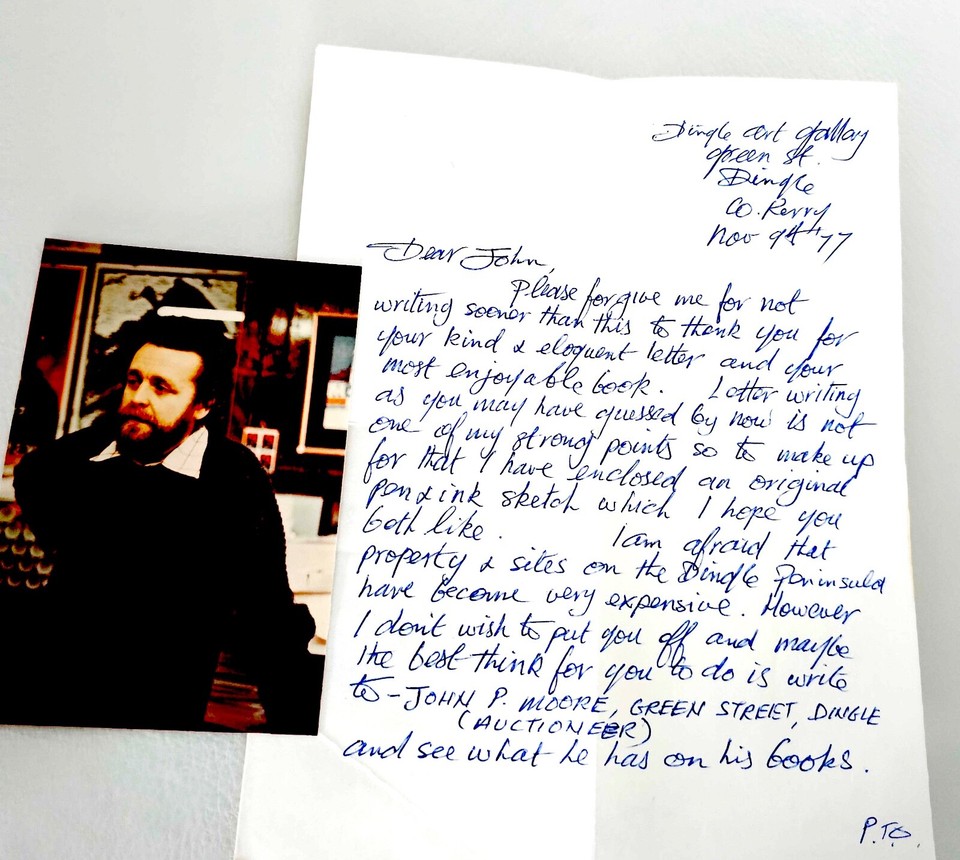 Dingle Art Gallery
Green St.
Dingle
Co. Kerry
Nov 9th 77
Dear John,
Please forgive me for not
writing sooner than this to thank you for
your kind & eloquent letter and your
most enjoyable book. Letter writing
as you may have guessed by now is not
one of my strong points so to make up
for that I have enclosed an original
pen & ink sketch which I hope you
both like. I am afraid that
property & sites on the Dingle Peninsula
have become very expensive. However
I don't wish to put you off and maybe
the best think for you to do is write
to - JOHN P. MOORE, GREEN STREET, DINGLE
(AUCTIONEER)
and see what he has on his books.
P.T.O.